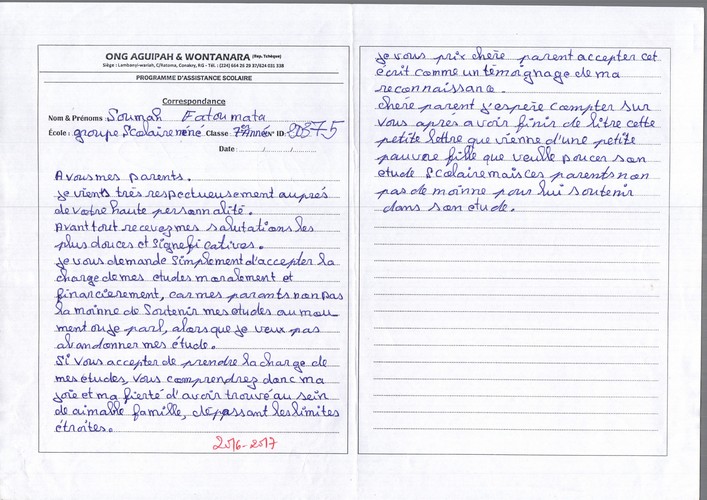 ONG AGUIPAH & WONTANARA (Rep. Tchèque)
Siège : Lambanyi-wariah, C/Ratoma, Conakry, RG - Tél. : (224) 664 25 29 27/624 031 338
PROGRAMME D'ASSISTANCE SCOLAIRE
Correspondance
Nom & Prénoms : Soumah Fatoumata
École : groupe Scolaire néné Classe : 7ème Année N° ID: 90375
Date : ....../....../......
A vous mes parents.
Je vients très respectueusement auprès
de votre haute personnalité.
Avant tout recevez mes salutations les
plus douces et Signeficatives.
Je vous demande Simplement d'accepter la
charge de mes etudes moralement et
financierement, car mes parents non pas
la moinne de Soutenir mes etudes au mou-
ment ou je parl, alors que je veux pas
abandonner mes étude.
Si vous accepter de prendre la charge de
mes études, vous comprendrez donc ma
joie et ma fierté d'avoir trouvé au sein
de aimable famille, depassant les limites
étroites.
2016-2017
je vous prix chère parent accepter cet
écrit comme un témoignage de ma
reconnaissance.
chère parent j'espère compter sur
vous après avoir finir de litre cette
petite lettre que vienne d'une petite
pauvre fille que veulle poucer son
etude Scolaire mais ces parents non
pas de moinne pour lui soutenir
dans son etude.